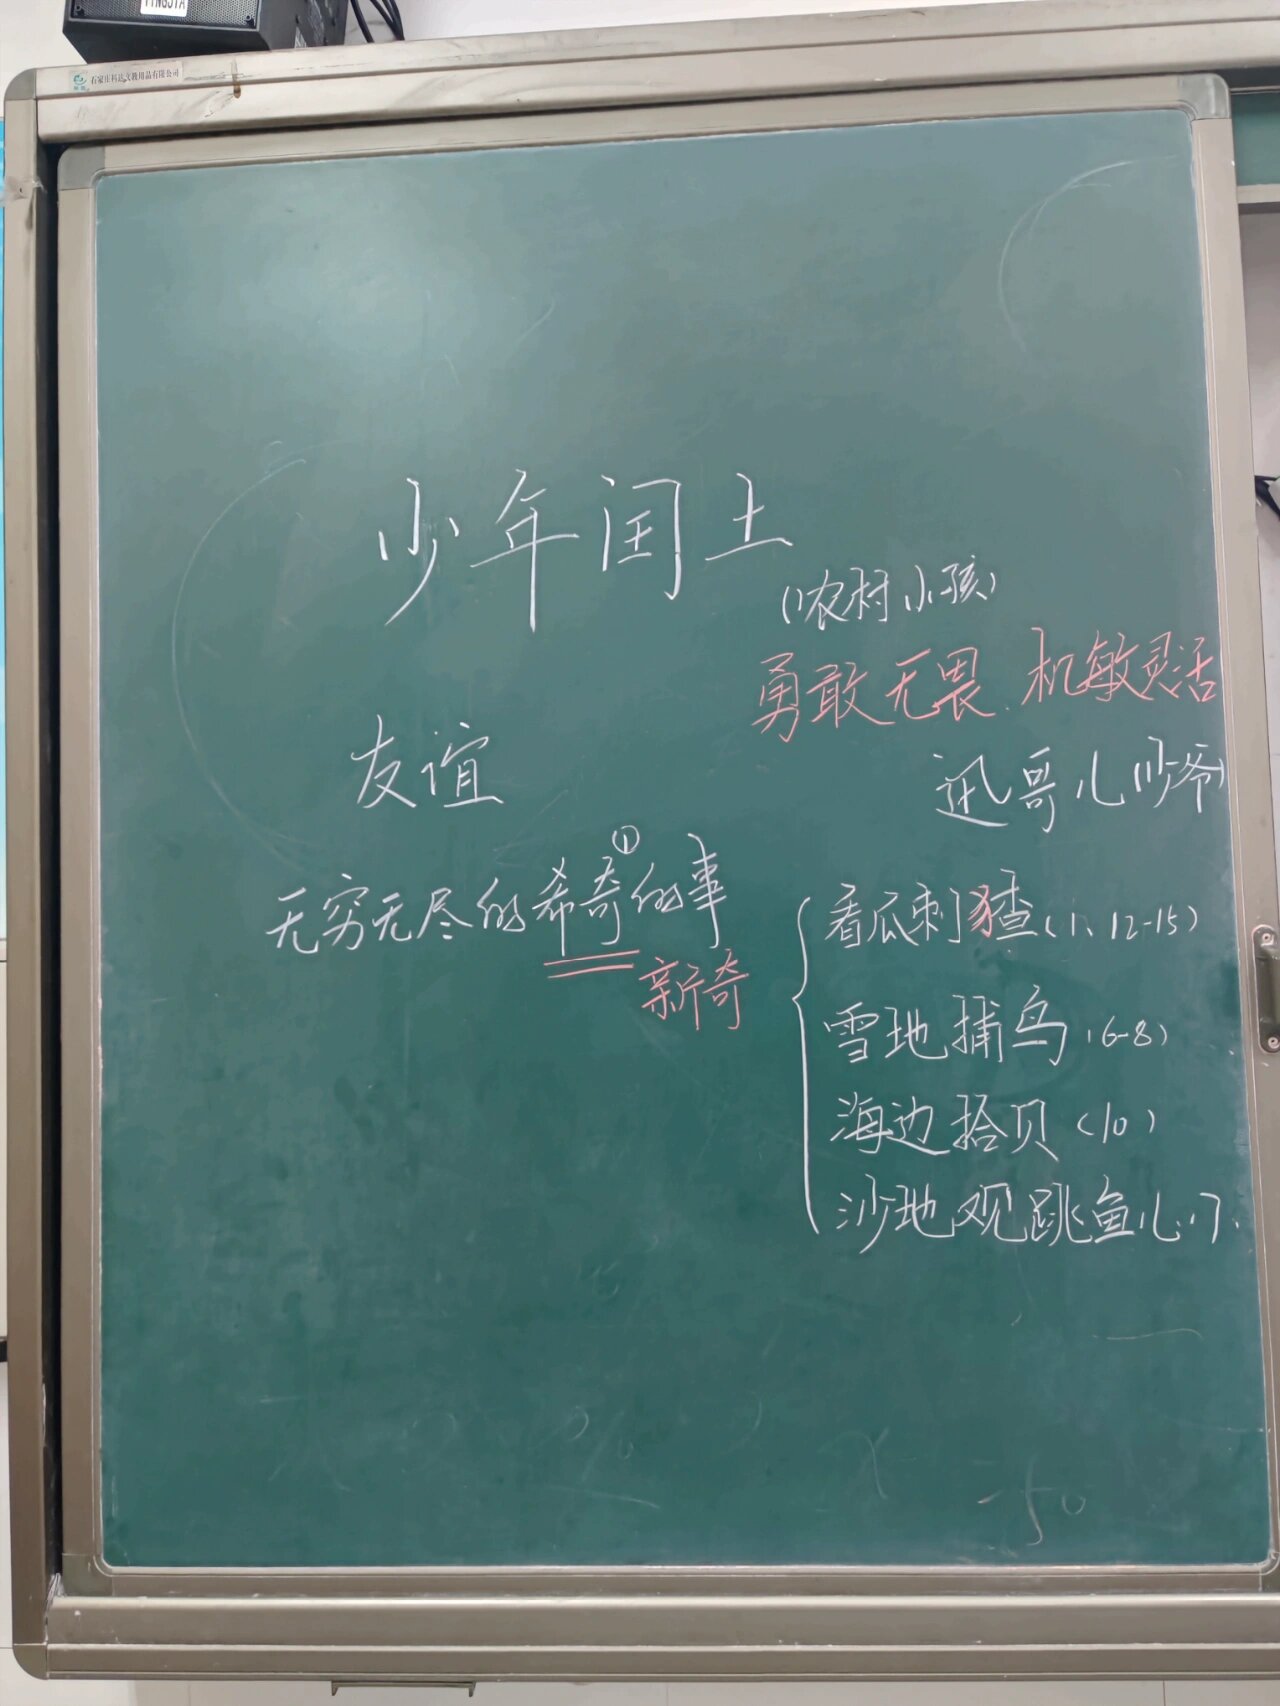 YINGJIA
石家庄科达文教用品有限公司
少年闰土
(农村小孩)
勇敢无畏、机敏灵活
友谊
迅哥儿(少爷)
①
无穷无尽的希奇的事
新奇
看瓜刺猹(1、12-15)
雪地捕鸟(6-8)
海边拾贝(10)
沙地观跳鱼儿(17)